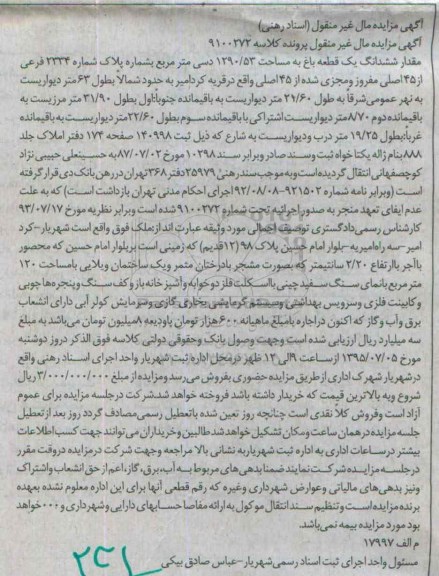 آگهی مزایده مال غیر منقول (اسناد رهنی)
آگهی مزایده مال غیر منقول پرونده کلاسه ۹۱۰۰۲۷۲
مقدار ششدانگ یک قطعه باغ به مساحت ۱۲۹۰/۵۳ دسی متر مربع بشماره پلاک شماره ۲۳۳۴ فرعی
از ۴۵ اصلی مفروز و مجزی شده از ۴۵ اصلی واقع در قریه کردامیر به حدود شمالاً بطول ۶۳ متر دیواریست
به نهر عمومی شرقاً به طول ۲۱/۶۰ متر دیواریست به باقیمانده جنوباً: اول بطول ۳۱/۹۰ متر مرز یست به
باقیمانده دوم ۸/۷۰ متر دیواریست اشتراکی با باقیمانده سوم بطول ۲۲/۶۰ متر دیواریست به باقیمانده
غرباً: بطول ۱۹/۲۵ متر درب و دیواریست به شارع که ذیل ثبت ۱۴۰۹۹۸ صفحه ۱۷۴ دفتر املاک جلد
۸۸۸ بنام ژاله یکتا خواه ثبت و سند صادر و برابر سند ۱۰۲۹۸ مورخ ۸۷/۰۷/۰۲ به حسینعلی حبیبی نژاد
کوچصفهانی انتقال گردیده است و به موجب سند رهنی ۲۵۹۷۹ دفتر ۳۶۸ تهران در رهن بانک دی قرار گرفته
است (و برابر نامه شماره ۹۲۱۵۰۲-۹۲/۰۸/۰۸ اجرای احکام مدنی تهران بازداشت است) که به علت
عدم ایفای تعهد منجر به صدور اجرائیه تحت شماره ۹۱۰۰۲۷۲ شده است و برابر نظریه مورخ ۹۳/۰۷/۱۷
کارشناس رسمی دادگستری توصیف اجمالی مورد وثیقه عبارت اند از: ملک فوق واقع است شهریار-کرد
امیر-سه راه امیریه-بلوار امام حسین پلاک ۹۸ (۱۲ قدیم) که زمینی است بر بلوار امام حسین که محصور
با آجر با ارتفاع ۲/۲۰ سانتیمتر که بصورت مشجر با درختان مثمر و یک ساختمان ویلایی با مساحت ۱۲۰
متر مربع با نمای سنگ سفید چینی با اسکلت فلز دو خوابه و آشپز خانه باز و کف سنگ و پنجره ها چوبی
و کابینت فلزی و سرویس بهداشتی و سیستم گرمایشی بخاری گازی و سرمایش کولر آبی دارای انشعاب
برق و آب و گاز که اکنون در اجاره با مبلغ ماهیانه ۶۰۰ هزار تومان با ودیعه ۸ میلیون تومان می باشد به مبلغ
سه میلیارد ریال ارزیابی شده است وجهت وصول بانک و حقوقی دولتی کلاسه فوق الذکر دروز دوشنبه
مورخ ۱۳۹۵/۰۷/۰۵ از ساعت ۹ الی ۱۲ ظهر در محل اداره ثبت شهریار واحد اجرای اسناد رهنی واقع
در شهریار شهرک اداری از طریق مزایده حضوری بفروش می رسد و مزایده از مبلغ ۳/۰۰۰/۰۰۰/۰۰۰ ریال
شروع و به بالاترین قیمت که خریدار داشته باشد فروخته خواهد شد شرکت در جلسه مزایده برای عموم
آزاد است و فروش کلا نقدی است چنانچه روز تعین شده با تعطیل رسمی مصادف گردد روز بعد از تعطیل
جلسه مزایده در همان ساعت و مکان تشکیل خواهد شد طالبین و خریداران می توانند جهت کسب اطلاعات
بیشتر در ساعات اداری به اداره ثبت شهریار به نشانی بالا مراجعه وجهت شرکت در مزایده در وقت مقرر
در جلسه مزایده شرکت نمایند ضمنا بدهی های مربوط به آب، برق، گاز، اعم از حق انشعاب و اشتراک
ونیز بدهی های مالیاتی و عوارض شهرداری و غیره که رقم قطعی آنها برای این اداره معلوم نشده بعهده
برنده مزایده است و تنظیم سند انتقال موکول به ارائه مفاصا حسابهای دارایی و شهرداری و ۰۰۰ خواهد
بود مورد مزایده بیمه نمی باشد.
م الف ۱۷۹۹۷
مسئول واحد اجرای ثبت اسناد رسمی شهریار-عباس صادق بیکی